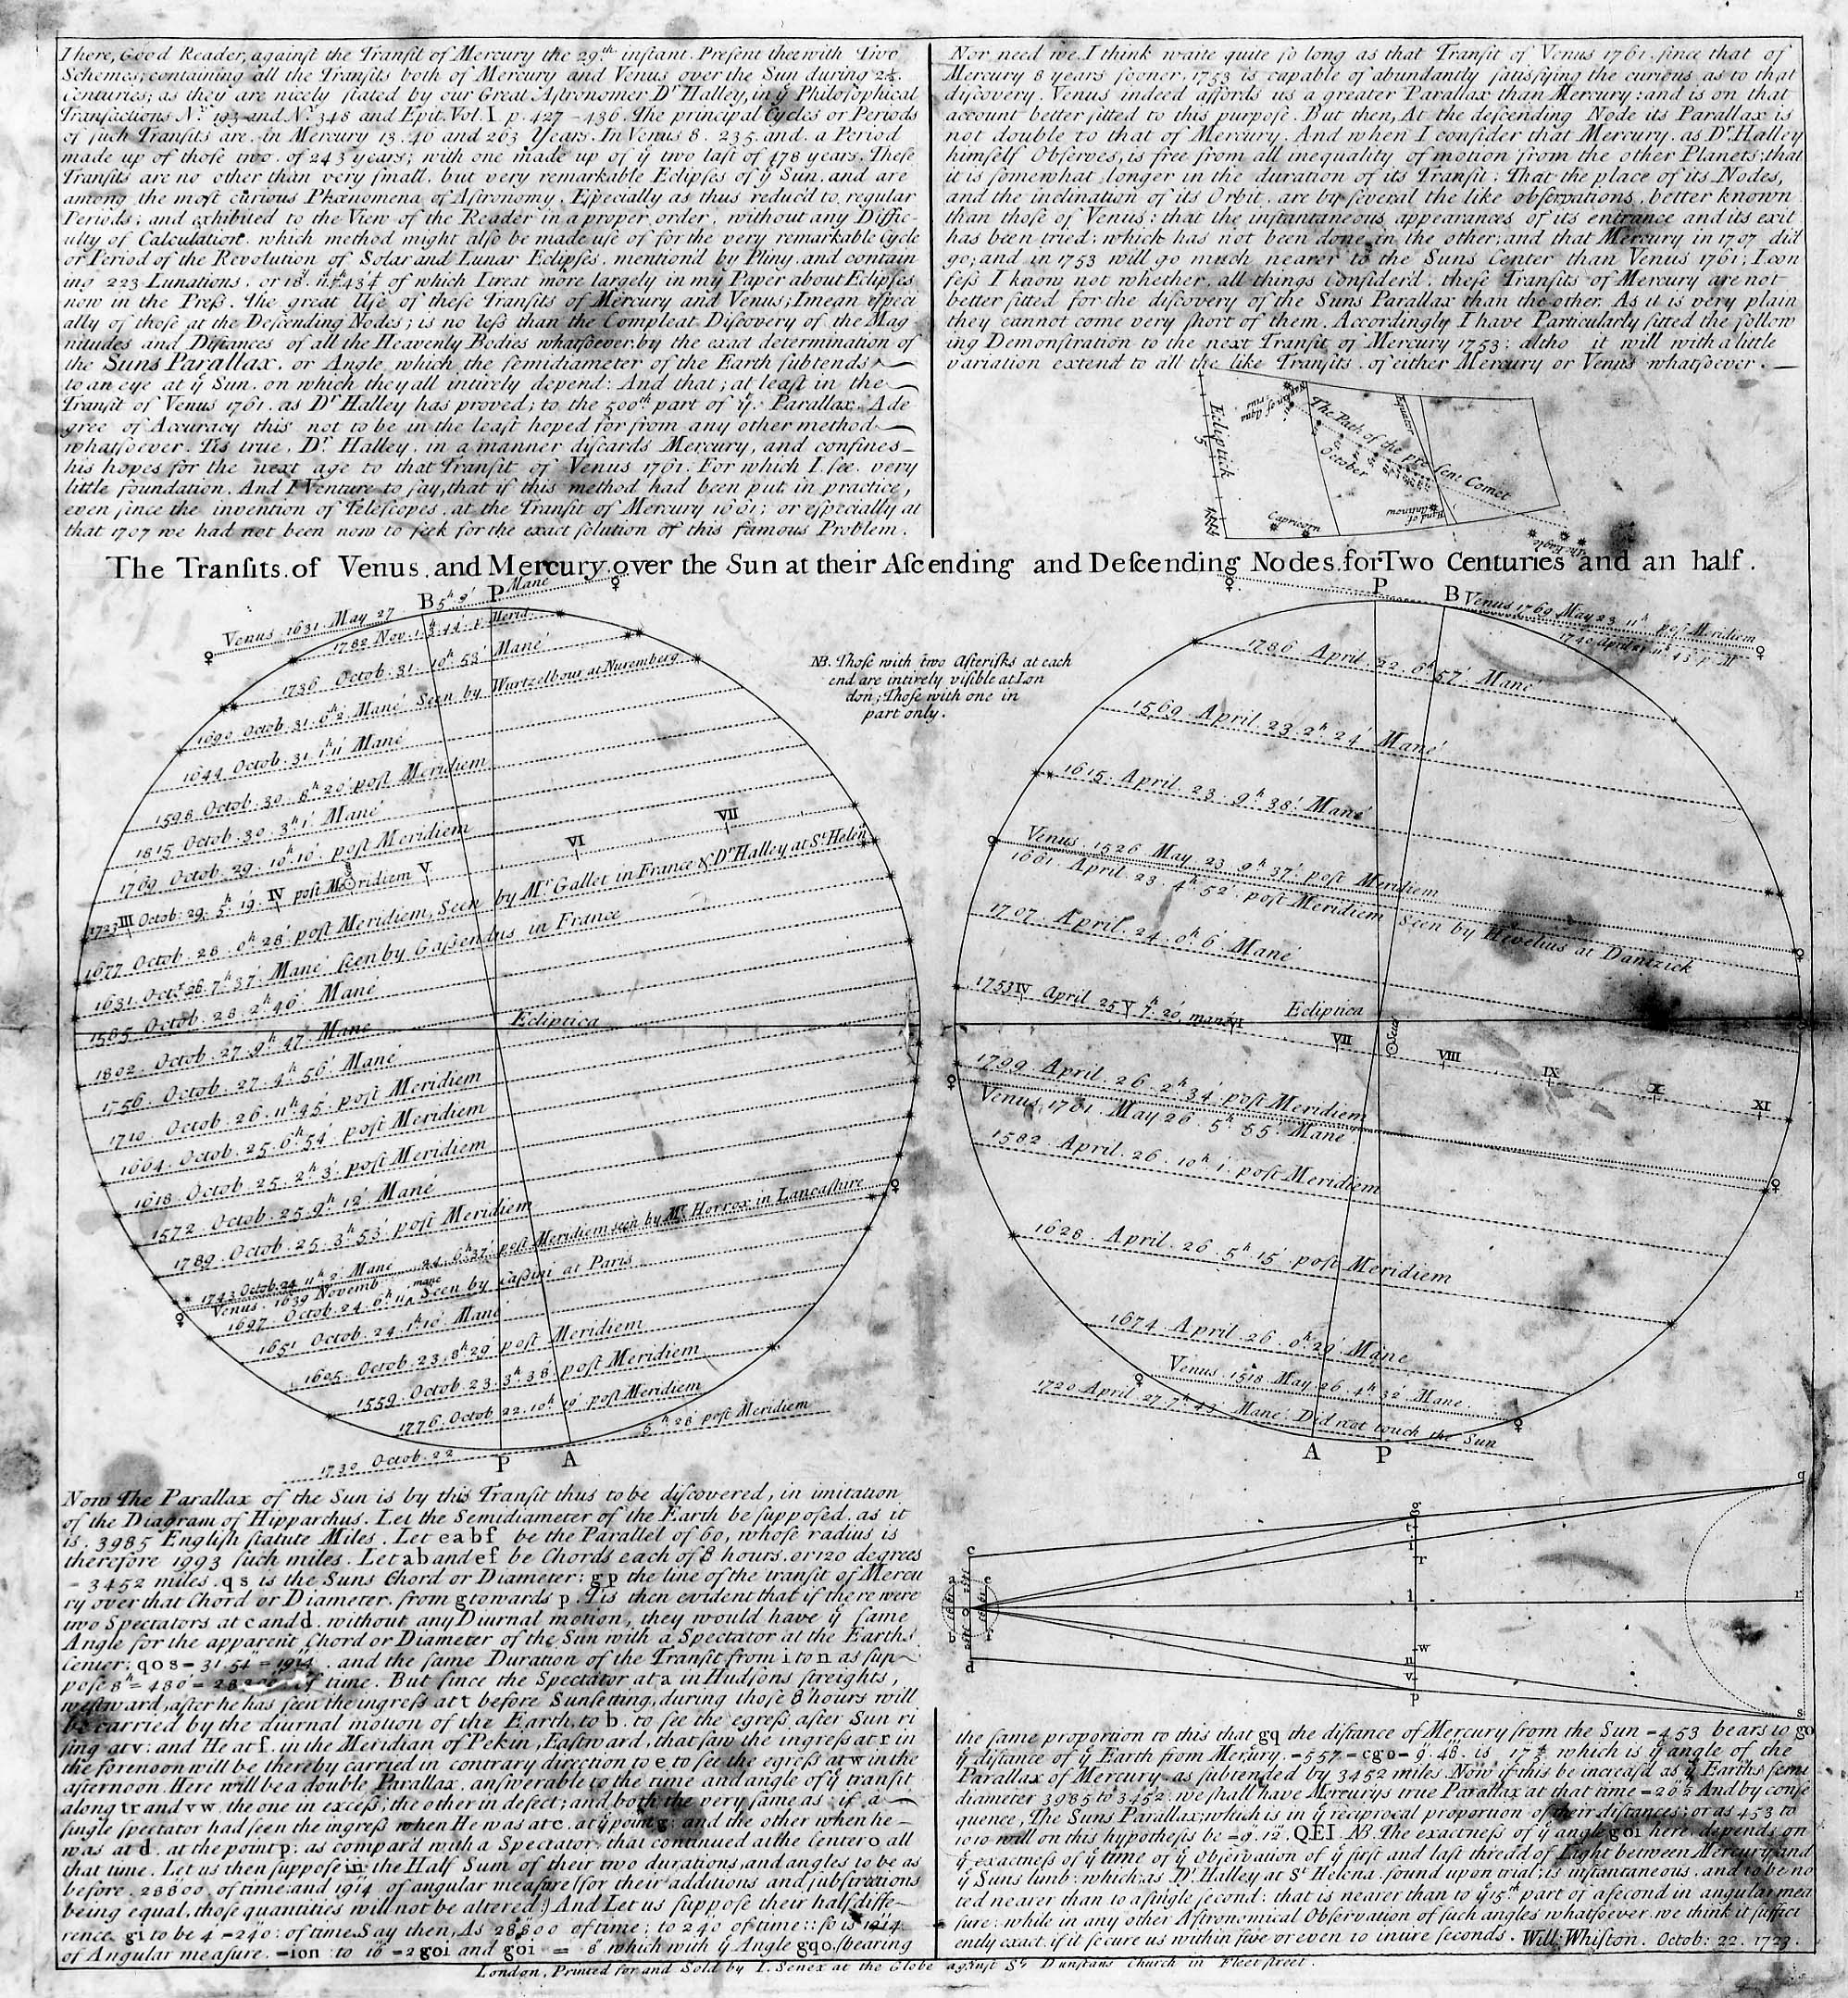 I here, Good Reader, againſt the Tranſit of Mercury the 29th inſtant. Preſent thee with Two
Schemes; containing all the Tranſits both of Mercury and Venus over the Sun during 2½
Centuries; as they are nicely ſtated by our Great Aſtronomer Dr Halley, in ẏ Philoſophical
Tranſactions No. 193 and No. 348 and Epit. Vol. I p. 427 – 436. The principal Cycles or Periods
of ſuch Tranſits are, in Mercury 13. 46 and 263 Years. In Venus 8. 235. and a Period
made up of thoſe two, of 243 years; with one made up of ẏ two laſt of 478 years. Theſe
Tranſits are no other than very ſmall, but very remarkable Eclipſes of ẏ Sun, and are
among the moſt curious Phænomena of Aſtronomy. Eſpecially as thus reduc'd to regular
Periods; and exhibited to the View of the Reader in a proper order, without any Diffic-
ulty of Calculation. which method might alſo be made uſe of for the very remarkable Cycle
or Period of the Revolution of Solar and Lunar Eclipſes, mention'd by Pliny, and contain
ing 223 Lunations, or 18. of which I treat more largely in my Paper about Eclipſes
now in the Preſs. The great Uſe of theſe Tranſits of Mercury and Venus; I mean eſpeci
ally of thoſe at the Deſcending Nodes; is no leſs than the Compleat Diſcovery of the Mag
nitudes and Diſtances of all the Heavenly Bodies whatſoever by the exact determination of
the Suns Parallax, or Angle which the ſemidiameter of the Earth ſubtends
to an eye at ẏ Sun, on which they all intirely depend: And that; at leaſt in the
Tranſit of Venus 1761. as Dr Halley has proved; to the 500th part of ẏ Parallax. A de
gree of Accuracy this not to be in the leaſt hoped for from any other method
whatſoever. Tis true, Dr. Halley, in a manner diſcards Mercury, and confines
his hopes for the next age to that Tranſit of Venus 1761. For which I ſee very
little foundation. And I Venture to ſay, that if this method had been put in practice,
even ſince the invention of Teleſcopes, at the Tranſit of Mercury 1661; or eſpecially at
that 1707 we had not been now to ſeek for the exact ſolution of this famous Problem.
Nor need we I think waite quite ſo long as that Tranſit of Venus 1761. ſince that of
Mercury 8 years ſooner, 1753 is capable of abundantly ſatisfying the curious as to that
diſcovery. Venus indeed affords us a greater Parallax than Mercury: and is on that
account better fitted to this purpoſe. But then, At the deſcending Node its Parallax is
not double to that of Mercury. And when I conſider that Mercury, as Dr Halley
himſelf Obſerves, is free from all inequality of motion from the other Planets; that
it is ſomewhat longer in the duration of its Tranſit: That the place of its Nodes,
and the inclination of its Orbit, are by ſeveral the like obſervations, better known
than thoſe of Venus: that the inſtantaneous appearances of its entrance and its exit
has been tried; which has not been done in the other; and that Mercury in 1707 did
go; and in 1753 will go much nearer to the Suns Center than Venus 1761; I con
feſs I know not whether, all things conſider'd, theſe Tranſits of Mercury are not
better fitted for the diſcovery of the Suns Parallax than the other. As it is very plain
they cannot come very ſhort of them. Accordingly I have Particularly fitted the follow
ing Demonſtration to the next Tranſit of Mercury 1753: altho it will with a little
variation extend to all the like Tranſits, of either Mercury or Venus whatſoever.
Ecliptick
5
The Path of the preſent Comet
October
Equator
Capricorn
Hand of Antinous
The Eagle
The Tranſits of Venus and Mercury over the Sun at their Aſcending and Deſcending Nodes for Two Centuries and an half.
B P
Venus 1631 May 27 5h 9' Mane
1782 Nov. 1. 3h 44' p. Merid.
1736 Octob. 31. 10h 53' Mané
1690 Octob. 31. 6h 2' Mané Seen by Wurtzelbour at Nuremberg
1644 Octob. 31. 1h 11' Mané
1598 Octob. 30. 8h 20' poſt Meridiem
1815 Octob. 30. 3h 1' Mané
1769 Octob. 29. 10h 10' poſt Meridiem
1723 Octob. 29. 5h 19' poſt Meridiem
III IV V VI VII
1677 Octob. 28. 0h 28' poſt Meridiem, Seen by Mr Gallet in France & Dr Halley at St Helen
1631 Octr 28. 7h 37' Mané ſeen by Gaſsendus in France
1585 Octob. 28. 2h 46' Mané
Ecliptica
1802 Octob. 27. 9h 47' Mane
1756 Octob. 27. 4h 56' Mané
1710 Octob. 26. 11h 45' poſt Meridiem
1664 Octob. 25. 6h 54' poſt Meridiem
1618 Octob. 25. 2h 3' poſt Meridiem
1572 Octob. 25. 9h 12' Mané
1789 Octob. 25. 3h 53' poſt Meridiem
1743 Octob. 24 11h 2' Mane
Venus 1639 Novemb. 24. 6h 37' poſt Meridiem ſeen by Mr. Horrox in Lancaſhire
1697 Octob. 24. 6h 11' mane Seen by Caſsini at Paris
1651 Octob. 24. 1h 10' Mané
1605 Octob. 23. 8h 29' poſt Meridiem
1559 Octob. 23. 3h 38' poſt Meridiem
1776 Octob. 22. 10h 19' poſt Meridiem
1730 Octob. 22 5h 28' poſt Meridiem
P A
NB. Thoſe with two Aſterisks at each
end are intirely viſible at Lon
don; Thoſe with one in
part only.
P B
Venus 1769 May 23 11h poſt Meridiem
1740 April 21 11h 43' p. M
1786 April 22. 6h 57' Mané
1569 April. 23. 2h 24' Mané
1615 April 23. 9h 38' Mané
Venus 1526 May 23 9h 37' poſt Meridiem
1661 April 23. 4h 52' poſt Meridiem Seen by Hevelius at Dantzick
1707 April. 24. 0h 6' Mané
1753 April 25 7h 20' mané
IV V VI VII VIII IX X XI
Ecliptica
Sun
1799 April. 26. 2h 34' poſt Meridiem
Venus 1761 May 26. 5h 55' Mané
1582 April. 26. 10h 1' poſt Meridiem
1628 April. 26. 5h 15' poſt Meridiem
1674 April. 26 0h 29' Mane
Venus 1518 May 26. 4h 32' Mane
1720 April 27. 7h 43' Mané Did not touch the Sun
A P
Now The Parallax of the Sun is by this Tranſit thus to be diſcovered, in imitation
of the Diagram of Hipparchus. Let the Semidiameter of the Earth be ſuppoſed, as it
is, 3985 Engliſh ſtatute Miles. Let eabf be the Parallel of 60, whoſe radius is
therefore 1993 ſuch miles. Let ab and ef be Chords each of 8 hours, or 120 degrees
= 3452 miles. qs is the Suns Chord or Diameter: gp the line of the tranſit of Mercu
ry over that Chord or Diameter, from g towards p. Tis then evident that if there were
two Spectators at c and d, without any Diurnal motion, they would have ẏ ſame
Angle for the apparent Chord or Diameter of the Sun with a Spectator at the Earths
Center; qos = 31'. 54" = 1914", and the ſame Duration of the Tranſit from i to n as ſup-
poſe 8h = 480' = of time. But ſince the Spectator at a in Hudſons ſtreights,
weſtward, after he has ſeen the ingreſs at t before Sunſetting, during thoſe 8 hours will
be carried by the diurnal motion of the Earth, to b, to ſee the egreſs after Sun ri
ſing at v: and He at f, in the Meridian of Pekin, Eaſtward, that ſaw the ingreſs at r in
the forenoon will be thereby carried in contrary direction to e to ſee the egreſs at w in the
afternoon. Here will be a double Parallax, anſwerable to the time and angle of ẏ tranſit
along tr and vw, the one in exceſs; the other in defect; and both the very ſame as if a
ſingle ſpectator had ſeen the ingreſs when He was at c, at ẏ point g; and the other when he
was at d, at the point p; as compar'd with a Spectator that continued at the Center o all
that time. Let us then ſuppoſe in the Half Sum of their two durations, and angles to be as
before, 28800" of time and 1914" of angular meaſure (for their additions and ſubſtractions
being equal, thoſe quantities will not be altered) And Let us ſuppoſe their half diffe-
rence, gi to be 4' = 240": of time. Say then, As 28800" of time: to 240" of time :: ſo is 1914"
of Angular meaſure, = ion to 16" = 2 goi and goi = 8" which with ẏ Angle gqo, (bearing
q
g
t
i
r
c
a e
o
l
r
w
n
v
p
d
s
the ſame proportion to this that gq the diſtance of Mercury from the Sun = 453 bears to go
ẏ diſtance of ẏ Earth from Mercury, = 557 = cgo = 9". 48"'. is which is ẏ angle of the
Parallax of Mercury, as ſubtended by 3452 miles. Now if this be increaſd as ẏ Earths ſemi
diameter 3985 to 3452. we ſhall have Mercurys true Parallax at that time = And by conſe
quence, The Suns Parallax; which is in ẏ reciprocal proportion of their diſtances; or as 453 to
1010 will on this hypotheſis be = 9". 12"'. QEI. NB. The exactneſs of ẏ angle goi here, depends on
ẏ exactneſs of ẏ time of ẏ Obſervation of ẏ firſt and laſt thredd of Light between Mercury and
ẏ Suns limb: which, as Dr Halley at St Helena found upon trial, is inſtantaneous, and to be no
ted nearer than to a ſingle ſecond: that is nearer than to ẏ 15th part of a ſecond in angular mea
ſure: while in any other Aſtronomical Obſervation of ſuch angles whatſoever, we think it ſuffici
ently exact, if it ſecure us within five or even 10 intire ſeconds. Will: Whiſton. Octob: 22. 1723.
London, Printed for and Sold by I. Senex at the Globe againſt St. Dunſtans Church in Fleetſtreet.